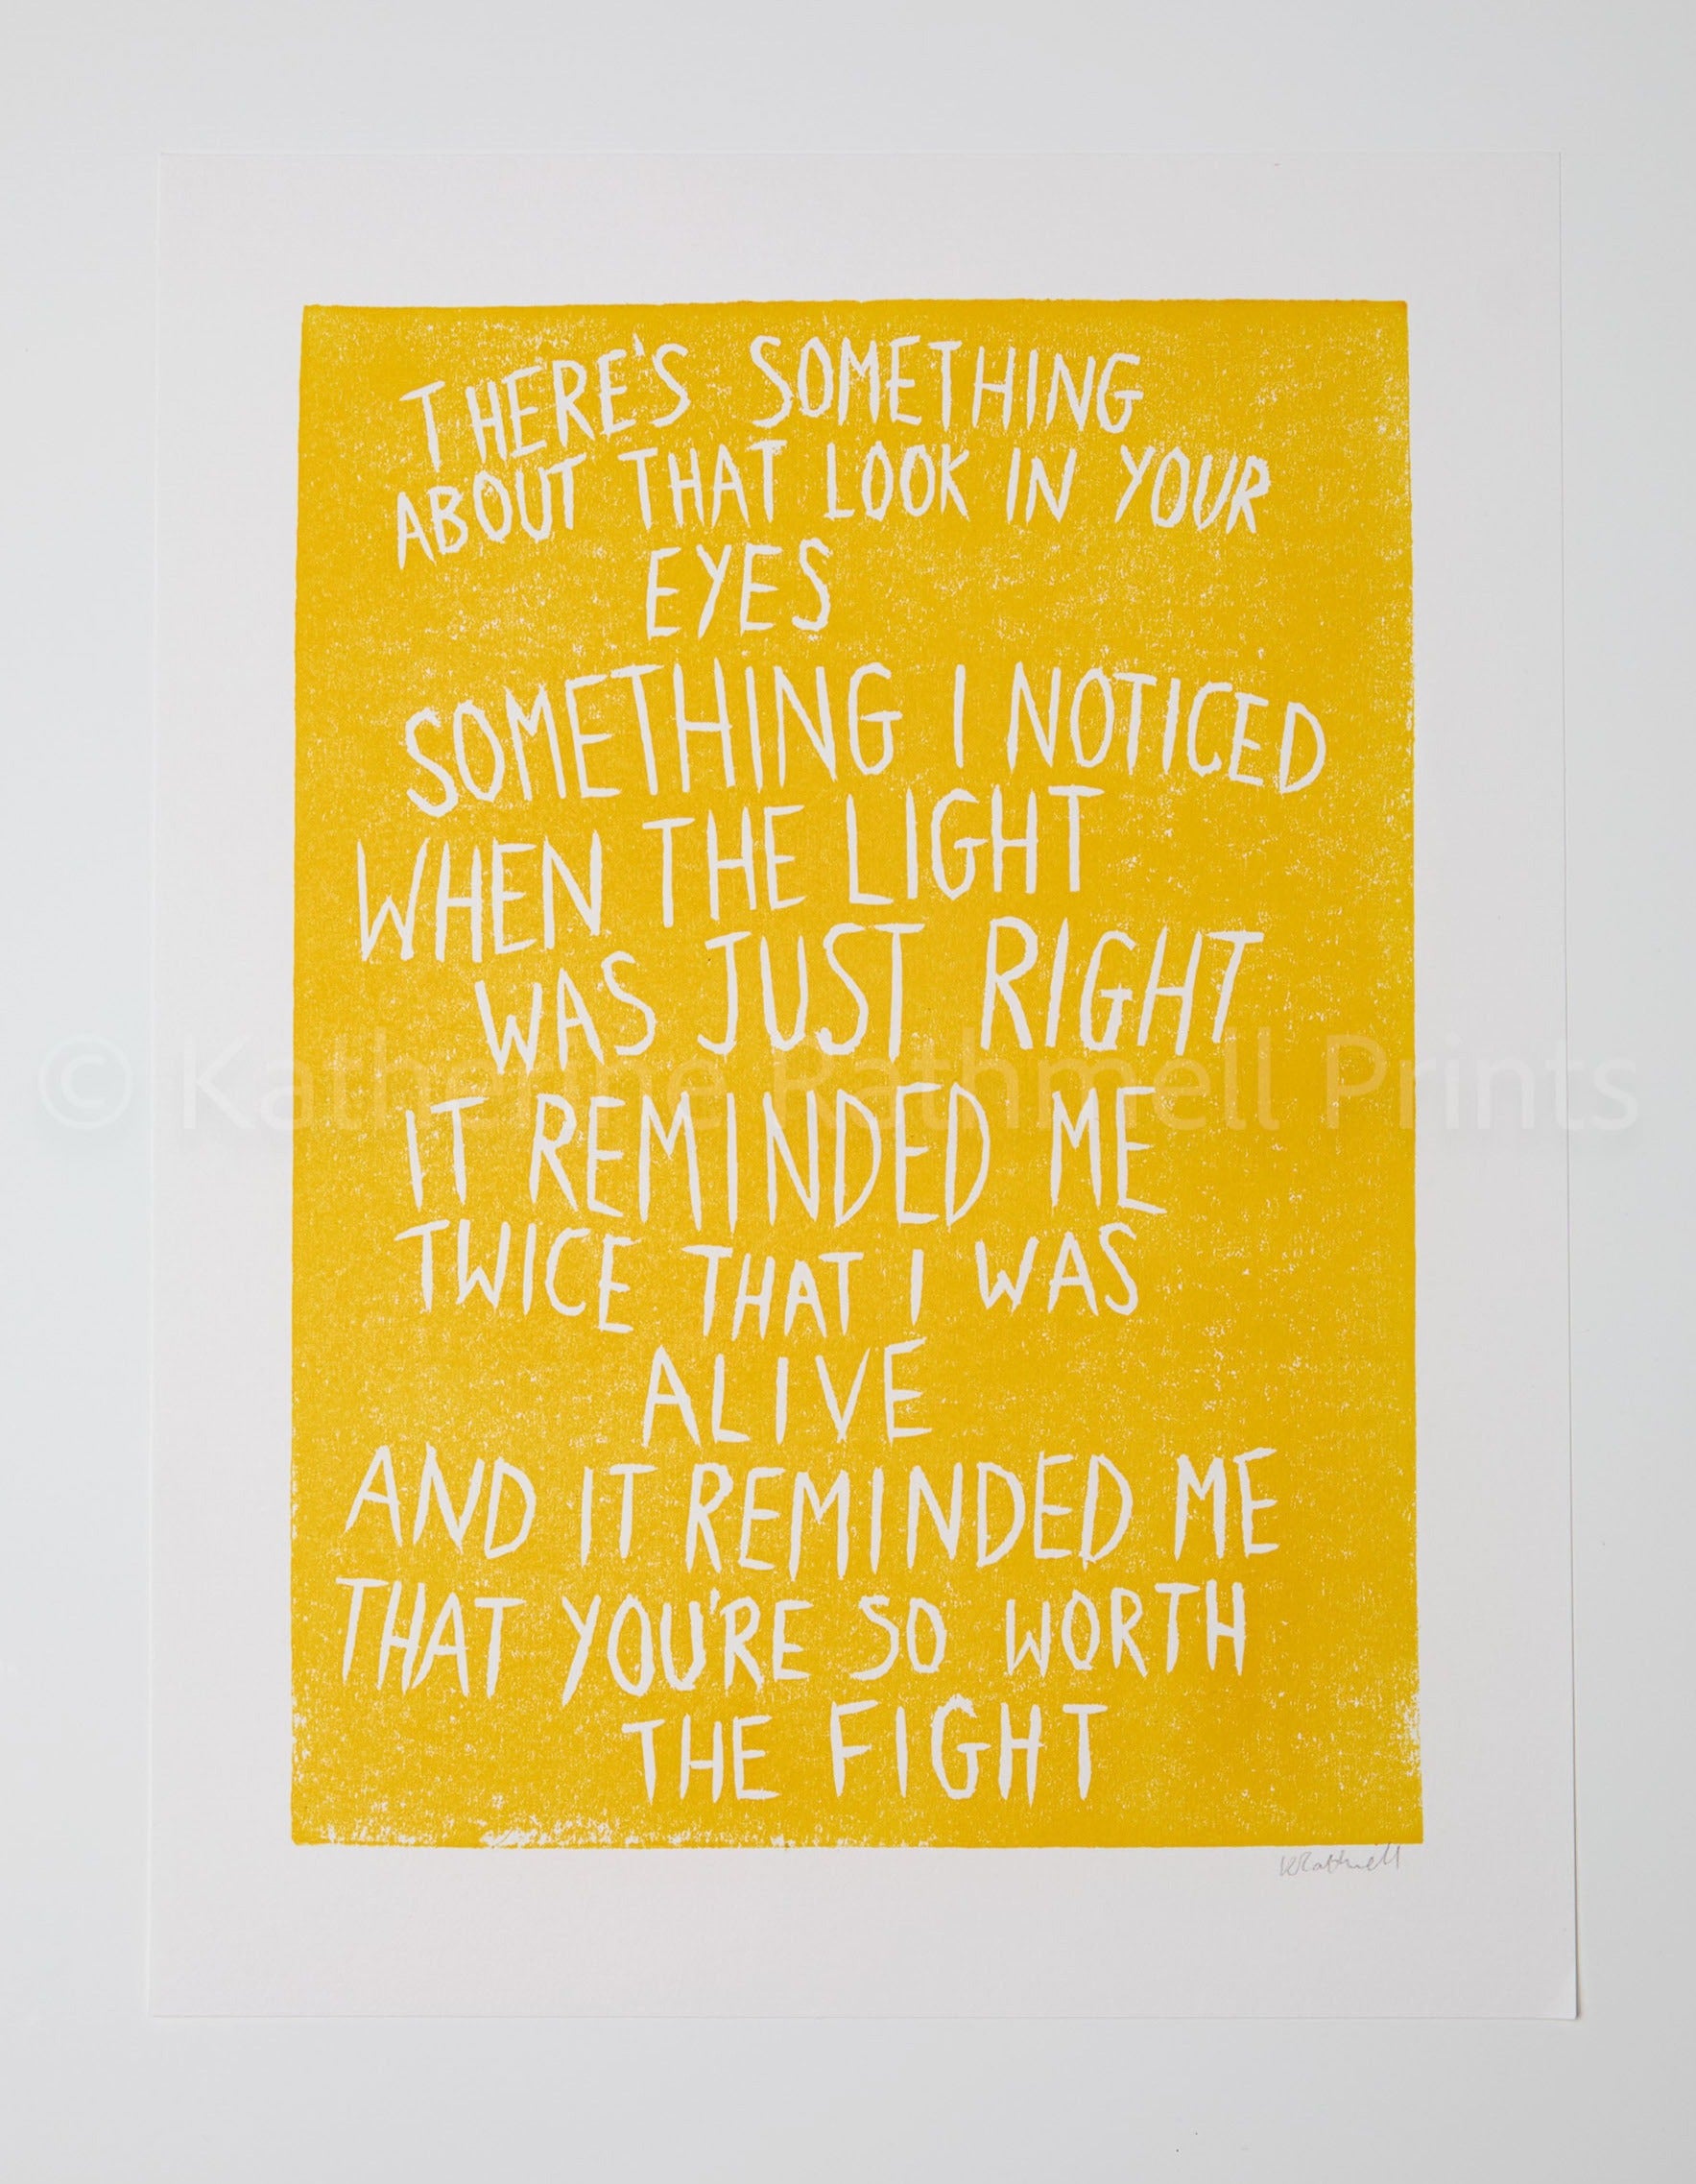 THERE'S SOMETHING
ABOUT THAT LOOK IN YOUR
EYES
SOMETHING I NOTICED
WHEN THE LIGHT
WAS JUST RIGHT
© Katherine Rathmell Prints
IT REMINDED ME
TWICE THAT I WAS
ALIVE
AND IT REMINDED ME
THAT YOU'RE SO WORTH
THE FIGHT
KRathmell